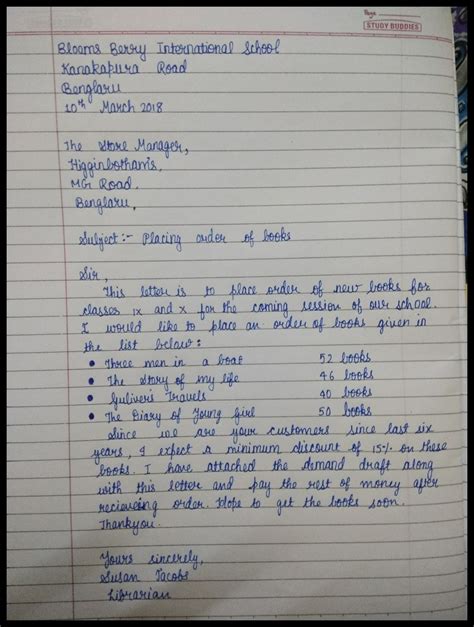 Page
STUDY BUDDIES
Blooms Berry International School
Kanakapura Road
Benglaru
10th March 2018
The Store Manager,
Higginbotham's,
MG Road,
Benglaru,
Subject :- Placing order of books
Sir,
This letter is to place order of new books for
classes ix and x for the coming session of our school.
I would like to place an order of books given in
the list below :
• Three men in a boat 52 books
• The Story of my life 46 books
• Gulivers Travels 40 books
• The Diary of Young girl 50 books
Since we are your customers since last six
years, I expect a minimum discount of 15% on these
books. I have attached the demand draft along
with this letter and pay the rest of money after
recieveing order. Hope to get the books soon.
Thankyou.
Yours sincerely,
Susan Jacobs
Librarian